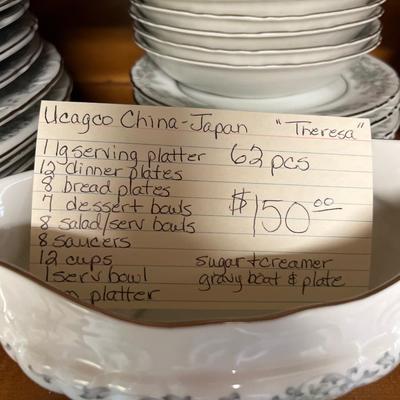 Ucagco China-Japan "Theresa"
1 lg serving platter 62 pcs
12 dinner plates
8 bread plates
7 dessert bowls $150.00
8 salad/serv bowls
8 saucers
12 cups sugar + creamer
1 serv bowl gravy boat & plate
platter